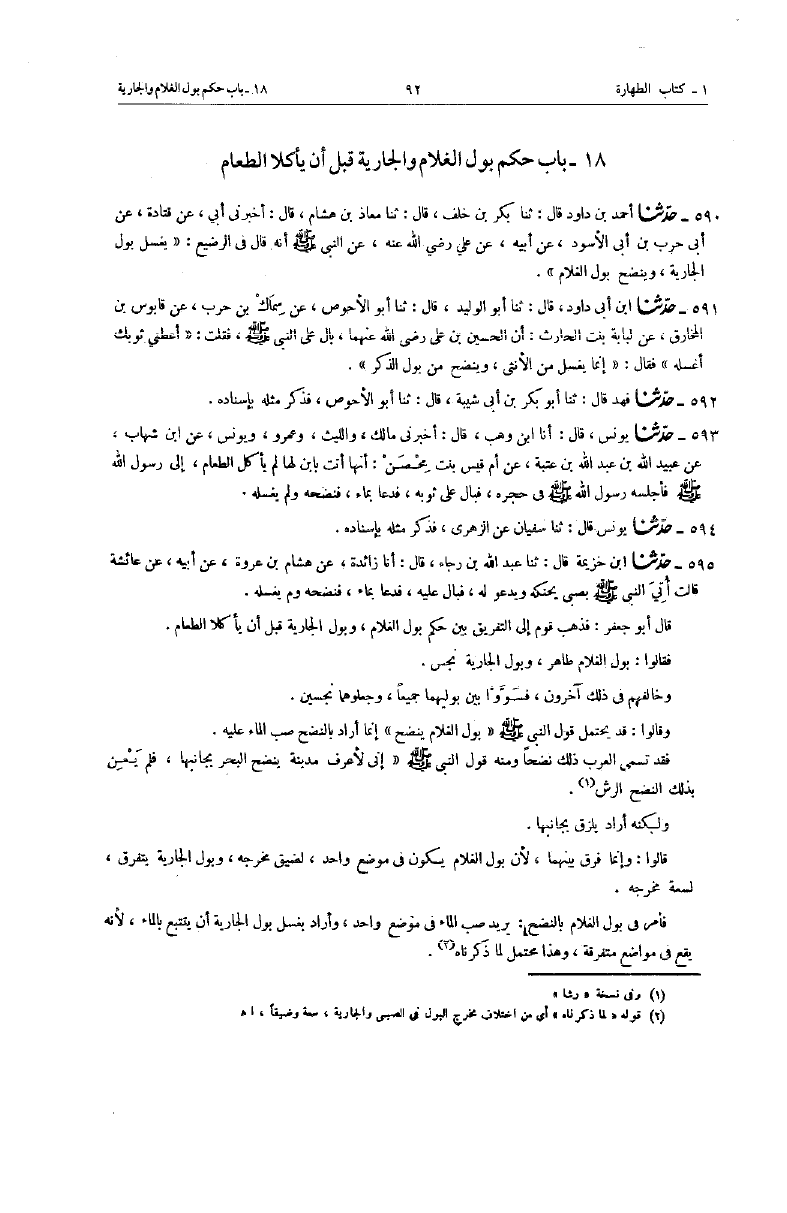 ١ - كتاب الطهارة ٩٢ ١٨ - باب حكم بول الغلام والجارية
١٨ - باب حكم بول الغلام والجارية قبل أن يأكلا الطعام
٥٩٠ - حدّثنا أحمد بن داود قال : ثنا بكر بن خلف ، قال : ثنا معاذ بن هشام ، قال : أخبرنى أبي ، عن قتادة ، عن
أبى حرب بن أبى الأسود ، عن أبيه ، عن علي رضي الله عنه ، عن النبي ﷺ أنه قال فى الرضيع : « يغسل بول
الجارية ، وينضح بول الغلام » .
٥٩١ - حدّثنا ابن أبى داود ، قال : ثنا أبو الوليد ، قال : ثنا أبو الأحوص ، عن سِمَاكْ بن حرب ، عن قابوس بن
المخارق ، عن لبابة بنت الحارث : أن الحسين بن على رضى الله عنهما ، بال على النبي ﷺ ، فقلت : « أعطني ثوبك
أغسله » فقال : « إنما يغسل من الأنثى ، وينضح من بول الذكر » .
٥٩٢ - حدّثنا فهد قال : ثنا أبو بكر بن أبى شيبة ، قال : ثنا أبو الأحوص ، فذكر مثله بإسناده .
٥٩٣ - حدّثنا يونس ، قال : أنا ابن وهب ، قال : أخبرنى مالك ، والليث ، وعمرو ، ويونس ، عن ابن شهاب ،
عن عبيد الله بن عبد الله بن عتبة ، عن أم قيس بنت مِحْصَنْ : أنها أتت بابن لها لم يأكل الطعام ، إلى رسول الله
ﷺ فأجلسه رسول الله ﷺ فى حجره ، فبال على ثوبه ، فدعا بماء ، فنضحه ولم يغسله .
٥٩٤ - حدّثنا يونس قال : ثنا سفيان عن الزهرى ، فذكر مثله بإسناده .
٥٩٥ - حدّثنا ابن خزيمة قال : ثنا عبد الله بن رجاء ، قال : أنا زائدة ، عن هشام بن عروة ، عن أبيه ، عن عائشة
قالت أُتِيَ النبي ﷺ بصبي يحنكه ويدعو له ، فبال عليه ، فدعا بماء ، فنضحه ولم يغسله .
قال أبو جعفر : فذهب قوم إلى التفريق بين حكم بول الغلام ، وبول الجارية قبل أن يأكلا الطعام .
فقالوا : بول الغلام طاهر ، وبول الجارية نجس .
وخالفهم فى ذلك آخرون ، فسَوَّوْا بين بوليهما جميعاً ، وجعلوهما نجسين .
وقالوا : قد يحتمل قول النبي ﷺ « بول الغلام ينضح » إنما أراد بالنضح صب الماء عليه .
فقد تسمى العرب ذلك نضحاً ومنه قول النبي ﷺ « إنى لأعرف مدينة ينضح البحر بجانبها ، فلم يَعْنِ
بذلك النضح الرش(١) .
ولكنه أراد يلزق بجانبها .
قالوا : وإنما فرق بينهما ، لأن بول الغلام يكون فى موضع واحد ، لضيق مخرجه ، وبول الجارية يتفرق ،
لسعة مخرجه .
فأمر فى بول الغلام بالنضح : يريد صب الماء فى موضع واحد ، وأراد بغسل بول الجارية أن يتتبع بالماء ، لأنه
يقع فى مواضع متفرقة ، وهذا محتمل لما ذكرناه(٢) .
(١) وفى نسخة « رشا »
(٢) قوله « لما ذكرناه » أي من اختلاف مخرج البول في الصبي والجارية ، سعة وضيقاً ، اهـ